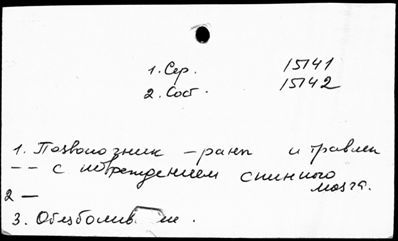 1. Сер. 15141
2. Сост. 15142
1. Позвоночник – ранен и травмы
-- с повреждением спинного
мозга.
2 —
3. Обезболив ие.